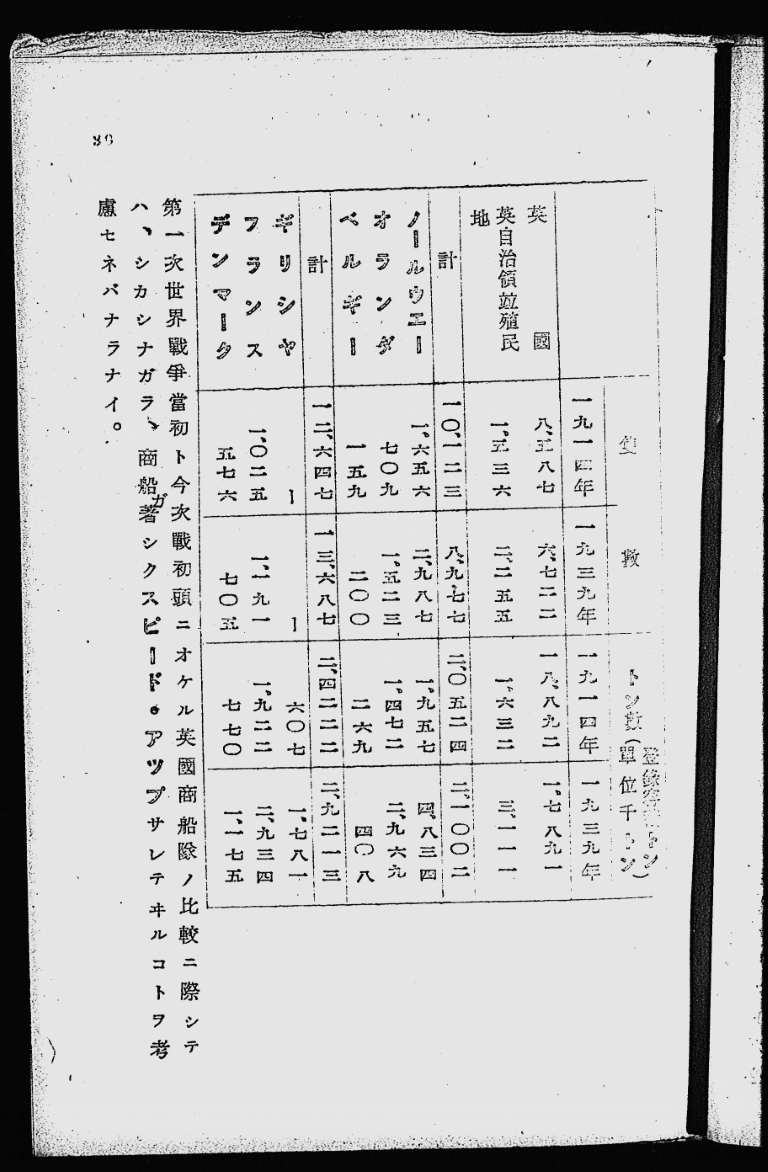 隻數 トン數(單位千トン)
一九一四年 一九三九年 一九一四年 一九三九年
英國 八、五八七 六、七二二 一八、八九二 一、七八九一
英自治領竝殖民地 一、五三六 二、二五五 一、六三二 三、一一一
計 一〇、一二三 八、九七七 二、〇五二四 二、一〇〇二
ノールウエー 一、六五六 二、九八七 一、九五七 四、八三四
オランダ 七〇九 一、五二三 一、四七二 二、九六九
ベルギー 一五九 二〇〇 二六九 四〇八
計 一二、六四七 一三、六八七 二、四二二二 二、九二一三
ギリシヤ ー ー 六〇七 一、七八一
フランス 一、〇二五 一、一九一 一、九二二 二、九三四
デンマーク 五七六 七〇五 七七〇 一、一七五
第一次世界戰爭當初ト今次戰初頭ニオケル英國商船隊ノ比較ニ際シテ
ハ、シカシナガラ、商船ガ著シクスピード・アツプサレテヰルコトヲ考
慮セネバナラナイ。
36